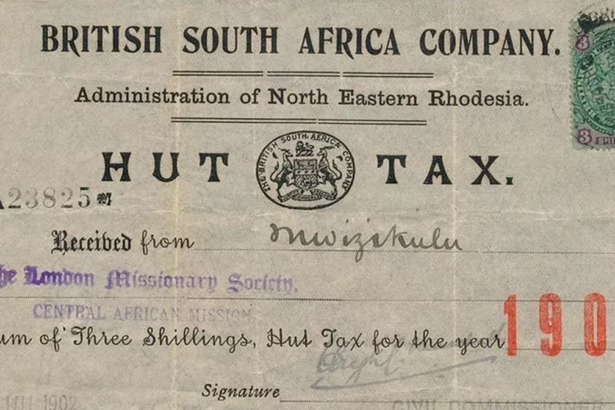 BRITISH SOUTH AFRICA COMPANY.
Administration of North Eastern Rhodesia.
HUT TAX.
THE BRITISH SOUTH AFRICA COMPANY
A23825
Received from Mwizakulu
he London Missionary Society,
CENTRAL AFRICAN MISSION
um of Three Shillings, Hut Tax for the year 190
Signature
CIVIL COMMISSIONER
1902
3
3